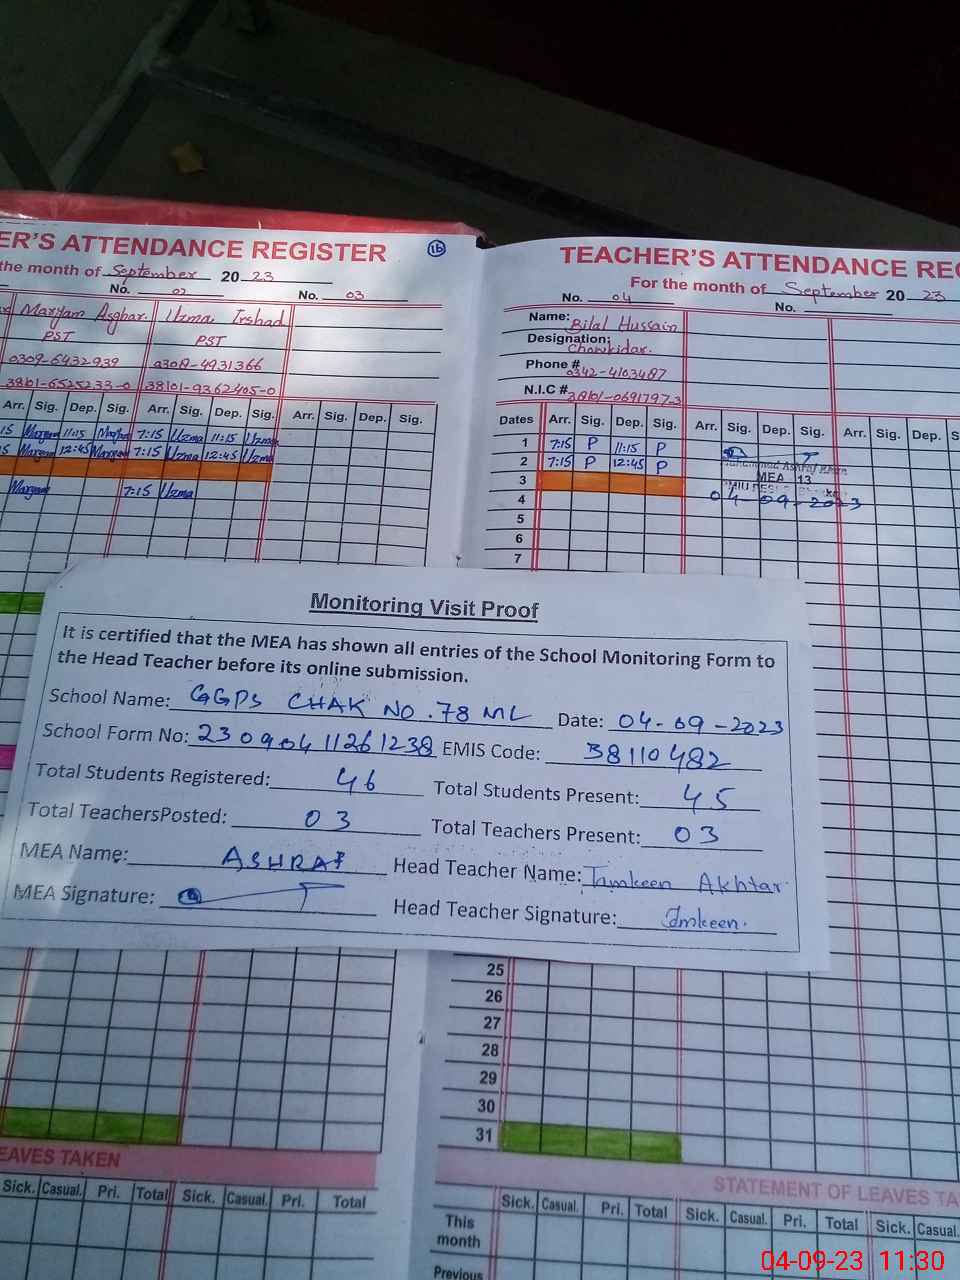 ER'S ATTENDANCE REGISTER
16
the month of September 2023
No. 02 No. 03
Maryam Asghar Uzma Irshad
PST PST
0309-6432939 0308-4931366
38101-6525233-0 38101-9362405-0
Arr. Sig. Dep. Sig. Arr. Sig. Dep. Sig. Arr. Sig. Dep. Sig.
15 Maryam 11:15 Maryam 7:15 Uzma 11:15 Uzma
15 Maryam 12:45 Maryam 7:15 Uzma 12:45 Uzma
Maryam 7:15 Uzma
TEACHER'S ATTENDANCE REG
For the month of September 2023
No. 04 No.
Name: Bilal Hussain
Designation: Chowkidar.
Phone # 0342-4103487
N.I.C # 38101-0691797-3
Dates Arr. Sig. Dep. Sig. Arr. Sig. Dep. Sig. Arr. Sig. Dep. S
1 7:15 P 11:15 P
2 7:15 P 12:45 P
Muhammad Ashraf Khan
MEA 13
3
4 04-09-2023
5
6
7
Monitoring Visit Proof
It is certified that the MEA has shown all entries of the School Monitoring Form to
the Head Teacher before its online submission.
School Name: GGPS CHAK NO. 78 ML Date: 04-09-2023
School Form No: 23090411261238 EMIS Code: 38110482
Total Students Registered: 46 Total Students Present: 45
Total TeachersPosted: 03 Total Teachers Present: 03
MEA Name: ASHRAF Head Teacher Name: Tamkeen Akhtar
MEA Signature: Head Teacher Signature: Tamkeen.
25
26
27
28
29
30
31
EAVES TAKEN
Sick. Casual. Pri. Total Sick. Casual. Pri. Total
STATEMENT OF LEAVES TA
Sick. Casual. Pri. Total Sick. Casual. Pri. Total Sick. Casual.
This
month
Previous
04-09-23 11:30